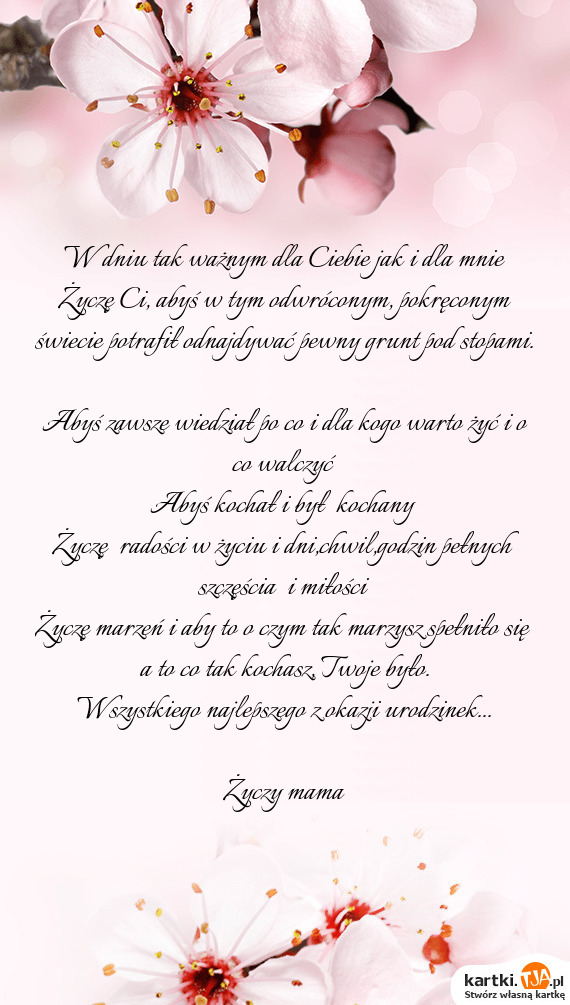 W dniu tak ważnym dla Ciebie jak i dla mnie
Życzę Ci, abyś w tym odwróconym, pokręconym
świecie potrafił odnajdywać pewny grunt pod stopami.
Abyś zawsze wiedział po co i dla kogo warto żyć i o
co walczyć
Abyś kochał i był  kochany
Życzę  radości w życiu i dni,chwil,godzin pełnych
szczęścia  i miłości
Życzę marzeń i aby to o czym tak marzysz spełniło się
a to co tak kochasz, Twoje było.
Wszystkiego najlepszego z okazji urodzinek...
Życzy mama
kartki.TJA.pl
Stwórz własną kartkę